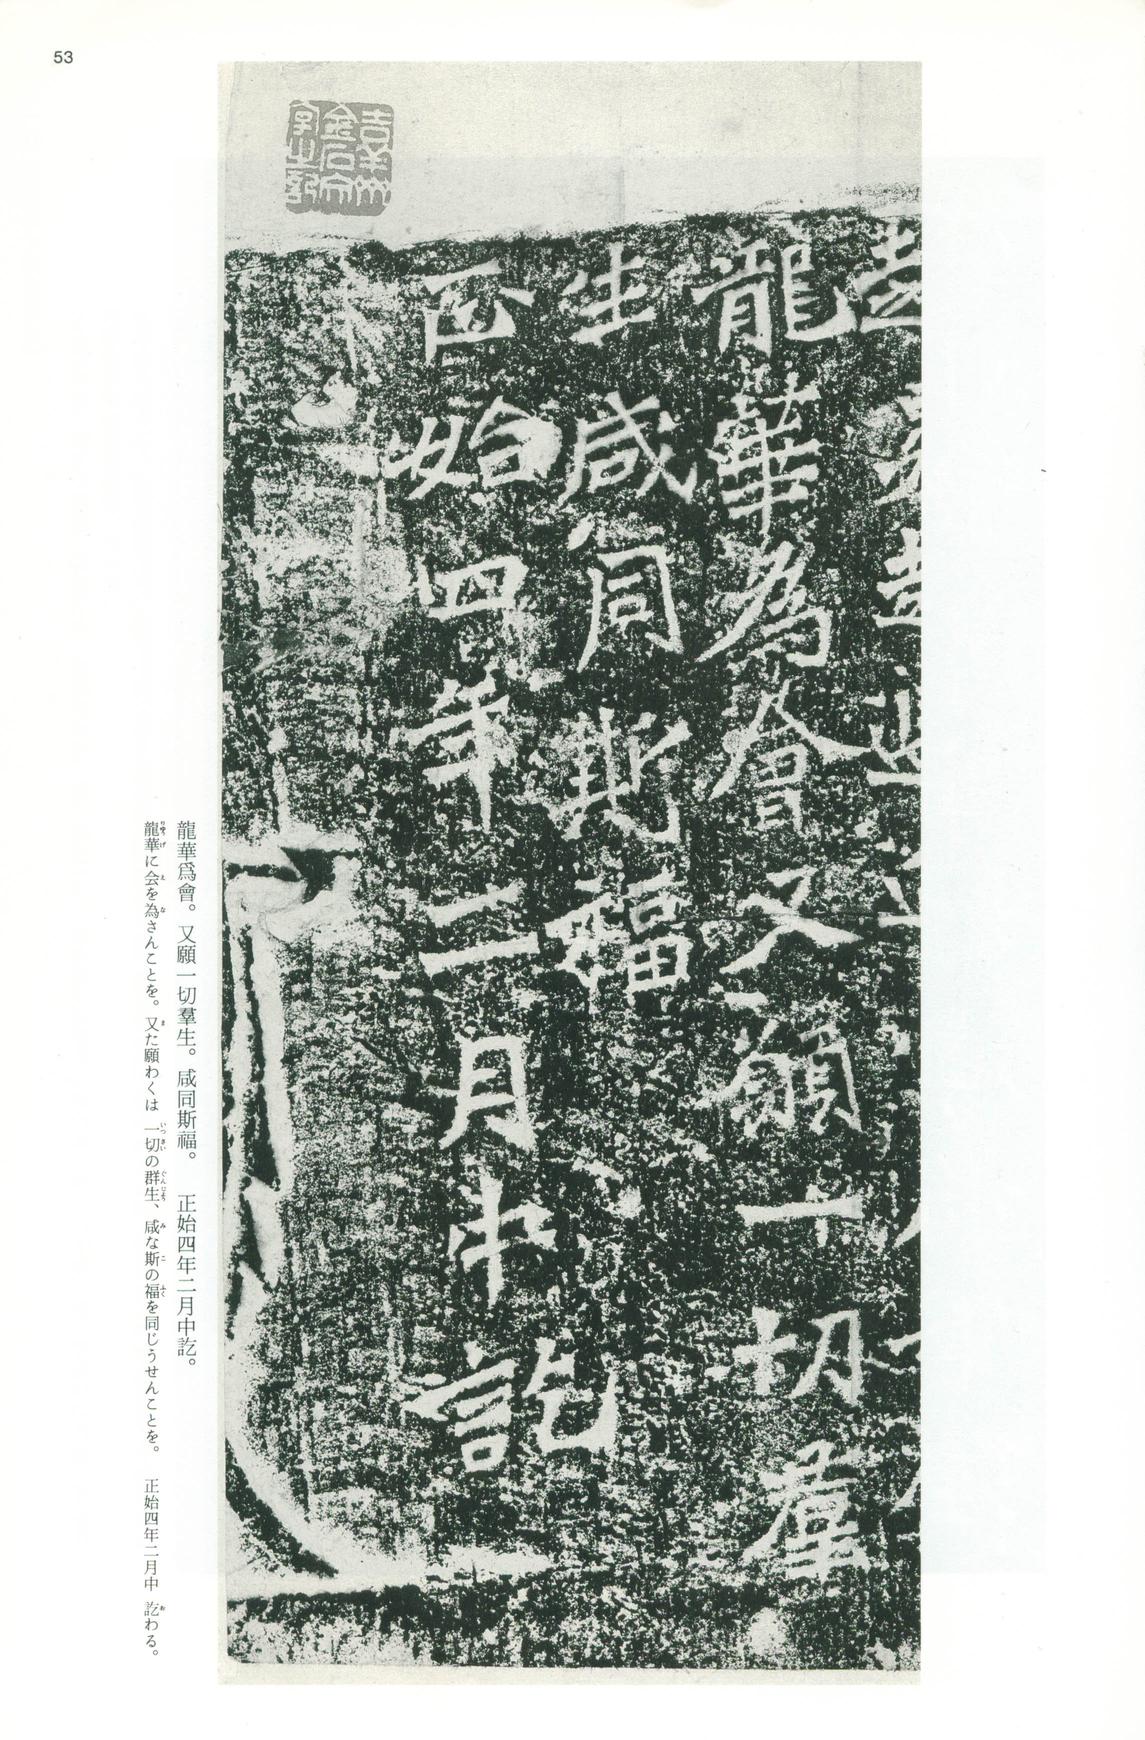 53
龍華為會又願一切羣
生咸同斯福
正始四年二月中訖
龍華爲會。又願一切羣生。咸同斯福。　正始四年二月中訖。
龍華に会を為さんことを。又た願わくは一切の群生、咸な斯の福を同じうせんことを。　正始四年二月中訖わる。